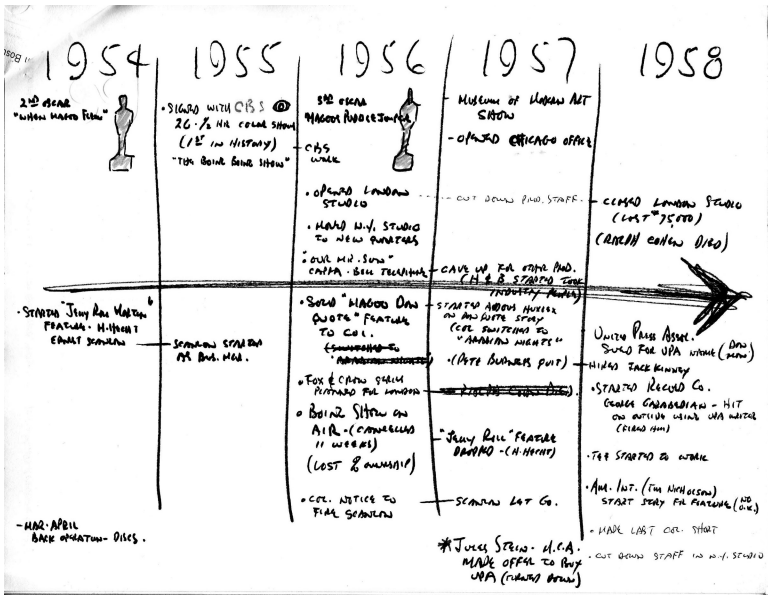 1954
2ND OSCAR
"WHEN MAGOO FLEW"
• STARTED "JELLY ROLL MORTON"
FEATURE - H. HECHT
ERNEST SCANLON
- MAR. APRIL
BACK OPERATION - DISCS.
1955
• SIGNED WITH CBS
26 · ½ HR COLOR SHOWS
(1ST IN HISTORY)
"THE BOING BOING SHOW"
SCANLON STARTED
AS BUS. MGR.
1956
3RD OSCAR
"MAGOO'S PUDDLE JUMPER"
CBS
WORK
• OPENED LONDON
STUDIO
• MOVED N.Y. STUDIO
TO NEW QUARTERS
• "OUR MR. SUN"
CAPRA - BELL TELEPHONE
• SOLD "MAGOO DON
QUOTE" FEATURE
TO COL.
(SWITCHED TO
"ARABIAN NIGHTS")
• FOX & CROW SERIES
PLANNED FOR LONDON
• BOING SHOW ON
AIR - (CANCELLED
11 WEEKS)
(LOST OWNERSHIP)
• COL. NOTICE TO
FIRE SCANLON
1957
- MUSEUM OF MODERN ART
SHOW
- OPENED CHICAGO OFFICE
- CUT DOWN PROD. STAFF -
- GAVE UP FOR OTHER PROD.
(H & B STARTED TOOK
INDUSTRY PEOPLE)
- STARTED ALDOUS HUXLEY
ON DON QUOTE STORY
(COL SWITCHED TO
"ARABIAN NIGHTS")
• (PETE BURNESS QUIT)
- RALPH COHEN DIED).
- "JELLY ROLL" FEATURE
DROPPED - (H. HECHT)
SCANLON LET GO.
* JULES STEIN - M.C.A.
MADE OFFER TO BUY
UPA (TURNED DOWN)
1958
- CLOSED LONDON STUDIO
(LOST $75,000)
(RALPH COHEN DIED)
UNITED PRESS ASSOC.
SUED FOR UPA NAME
- HIRED JACK KINNEY
• STARTED RECORD CO.
GEORGE GARABEDIAN - HIT
ON OUTSIDE USING UPA WRITER
(FIRED HIM)
• TEE STARTED TO WORK
• AM. INT. (JIM NICHOLSON)
START STORY FOR FEATURE (NO
O.K.)
• MADE LAST COL. SHORT
• CUT DOWN STAFF IN N.Y. STUDIO